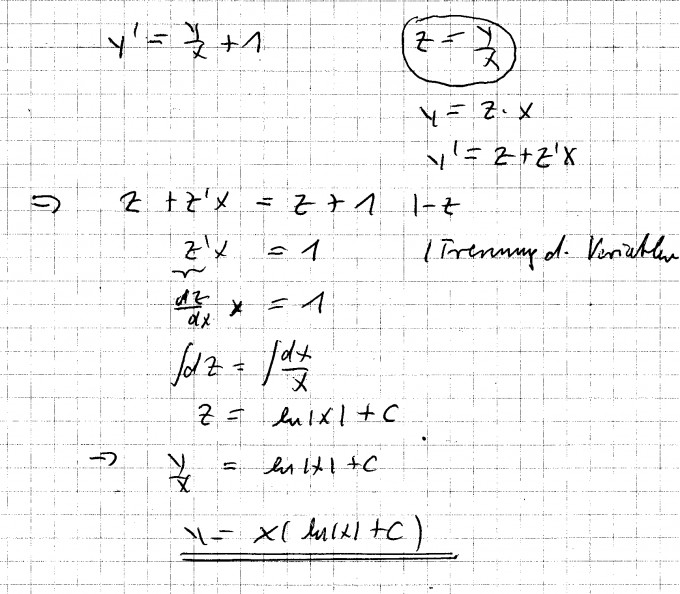 y' = y/x + 1
z = y/x
y = z · x
y' = z + z'x
⇒ z + z'x = z + 1 |-z
z'x = 1 | Trennung d. Variablen
dz/dx x = 1
∫dz = ∫dx/x
z = ln|x| + C
⇒ y/x = ln|x| + C
y = x( ln|x| + C )